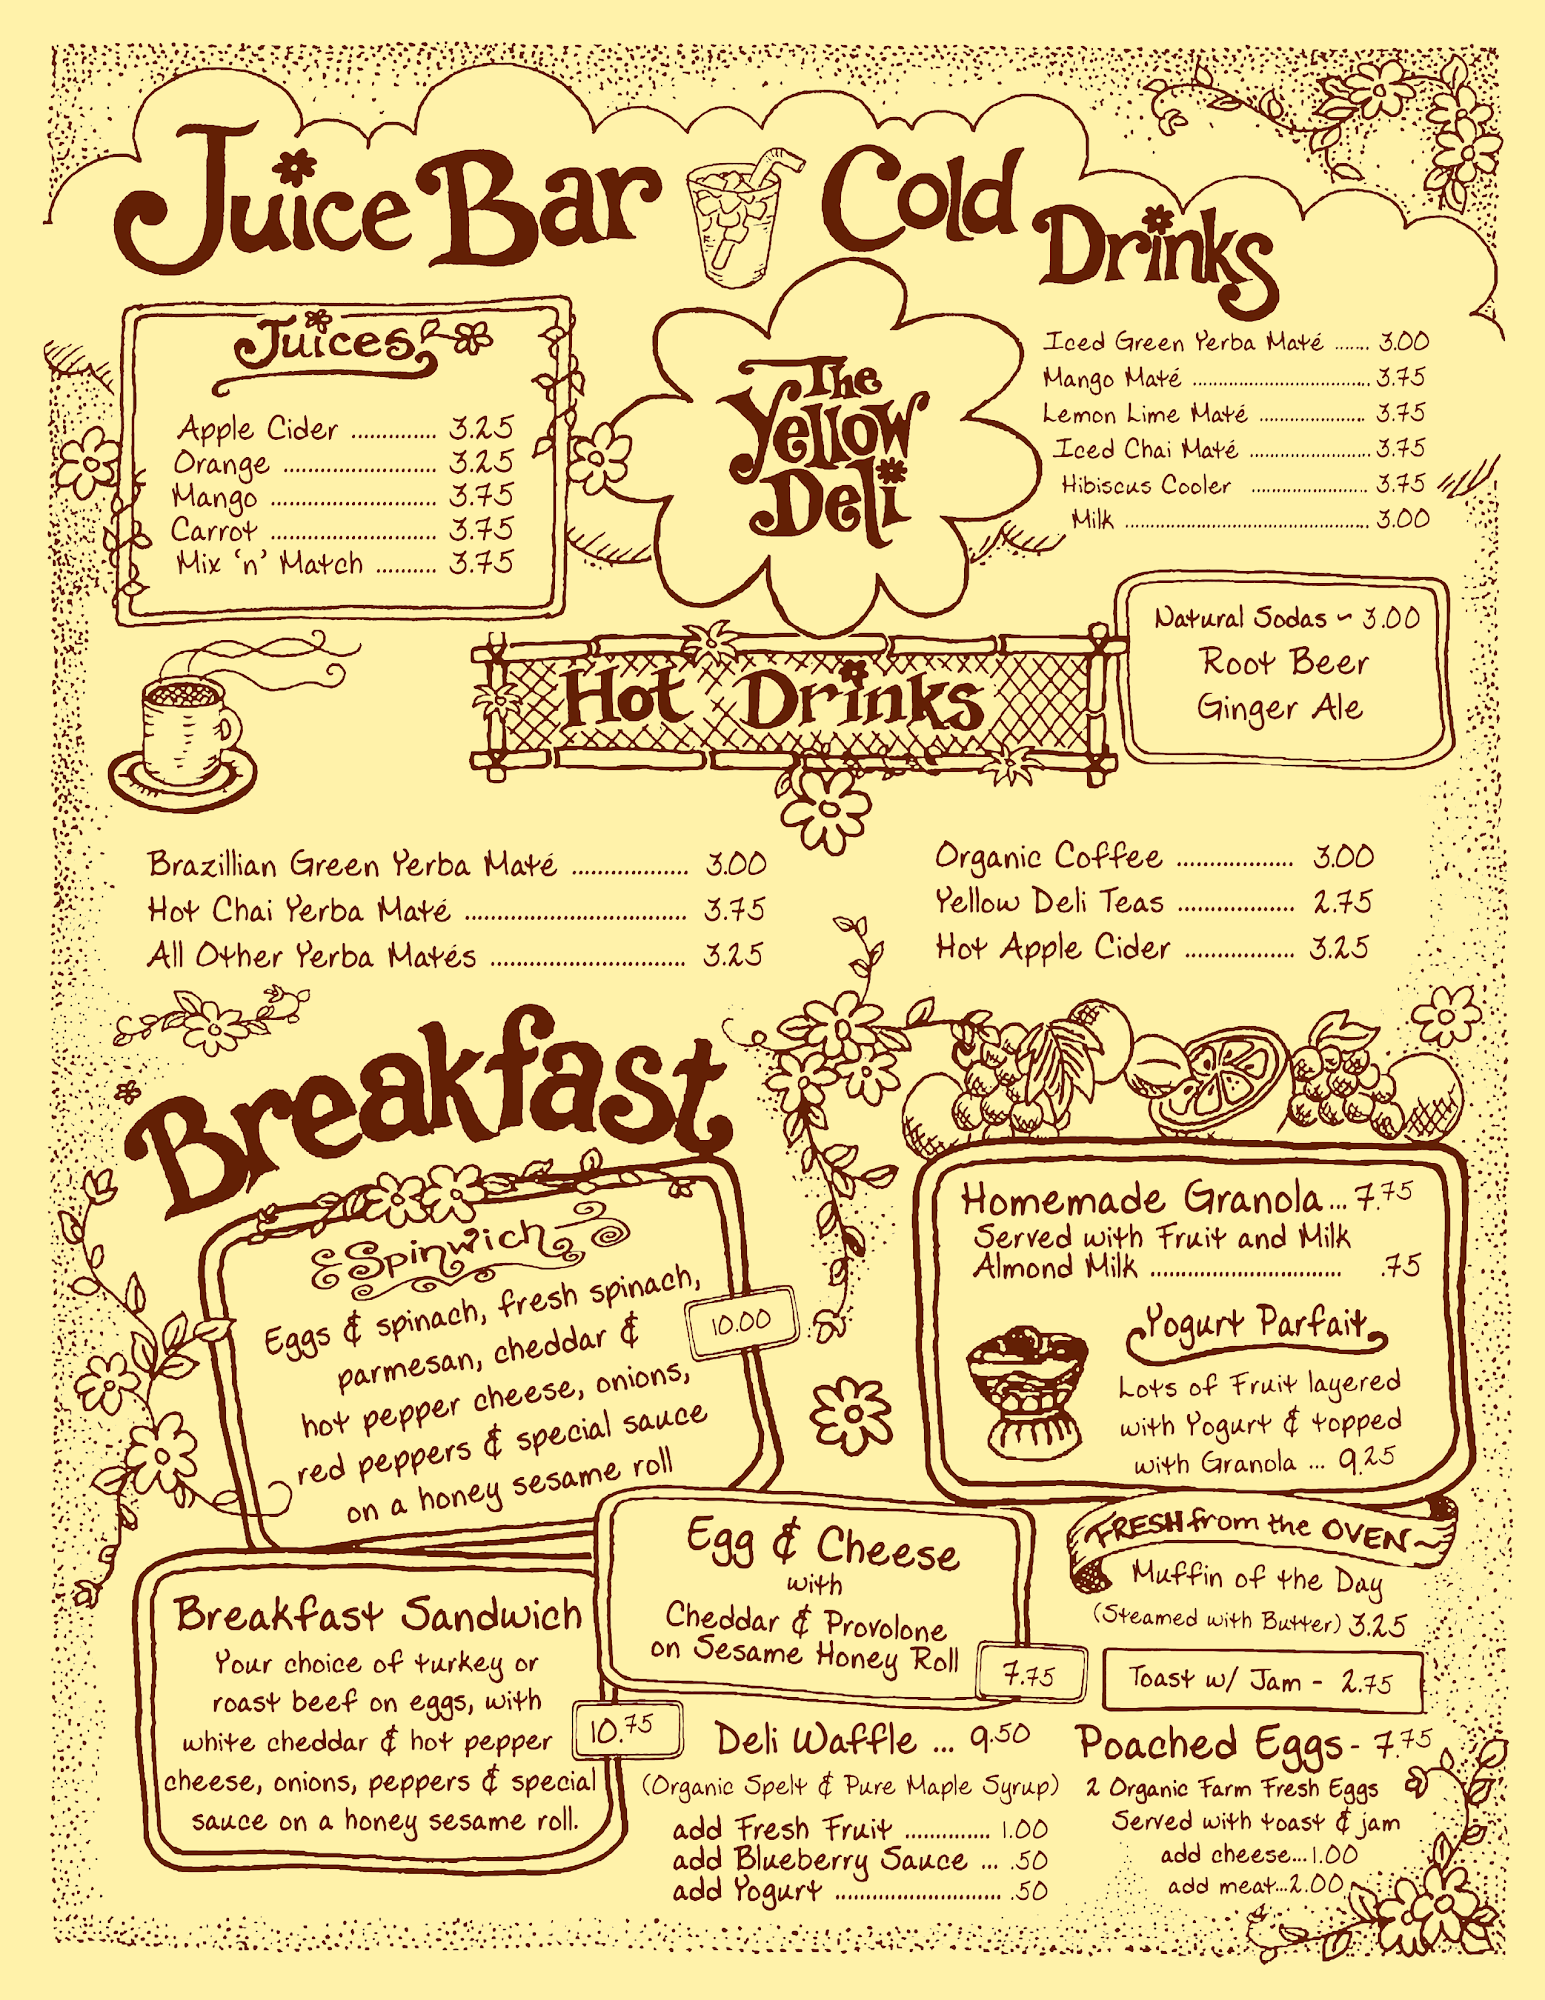 Juice Bar
Cold
Drinks
Juices
Apple Cider .............. 3.25
Orange ......................... 3.25
Mango ........................... 3.75
Carrot ........................... 3.75
Mix 'n' Match .......... 3.75
The
Yellow
Deli
Iced Green Yerba Maté ....... 3.00
Mango Maté ................................... 3.75
Lemon Lime Maté ..................... 3.75
Iced Chai Maté ........................ 3.75
Hibiscus Cooler ....................... 3.75
Milk ................................................ 3.00
Natural Sodas ~ 3.00
Root Beer
Ginger Ale
Hot Drinks
Brazillian Green Yerba Maté ................... 3.00
Hot Chai Yerba Maté .................................... 3.75
All Other Yerba Matés ................................ 3.25
Organic Coffee ................... 3.00
Yellow Deli Teas ................... 2.75
Hot Apple Cider .................. 3.25
Breakfast
Spinwich
Eggs & spinach, fresh spinach,
parmesan, cheddar &
hot pepper cheese, onions,
red peppers & special sauce
on a honey sesame roll
10.00
Homemade Granola... 7.75
Served with Fruit and Milk
Almond Milk ............................... .75
Yogurt Parfait
Lots of Fruit layered
with Yogurt & topped
with Granola ... 9.25
FRESH from the OVEN~
Muffin of the Day
(Steamed with Butter) 3.25
Toast w/ Jam - 2.75
Egg & Cheese
with
Cheddar & Provolone
on Sesame Honey Roll
7.75
Breakfast Sandwich
Your choice of turkey or
roast beef on eggs, with
white cheddar & hot pepper
cheese, onions, peppers & special
sauce on a honey sesame roll.
10.75
Deli Waffle ... 9.50
(Organic Spelt & Pure Maple Syrup)
add Fresh Fruit .............. 1.00
add Blueberry Sauce ... .50
add Yogurt ........................... .50
Poached Eggs - 7.75
2 Organic Farm Fresh Eggs
Served with toast & jam
add cheese...1.00
add meat...2.00